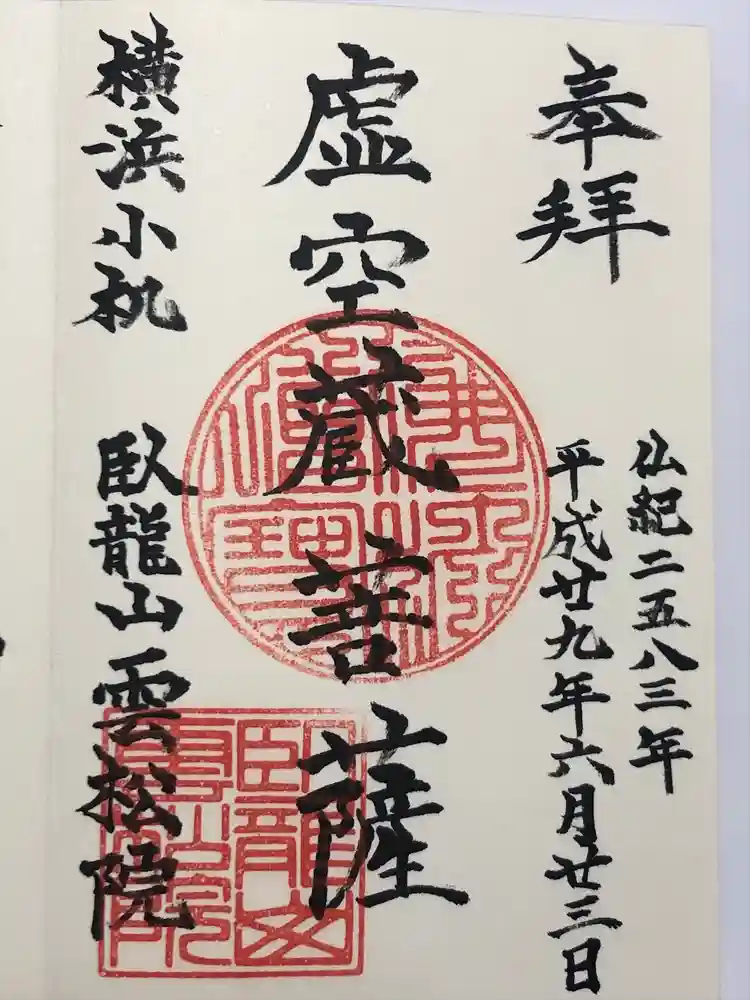 奉拝
仏紀二五八三年
平成廿九年六月廿三日
虚空蔵菩薩
横浜小机
臥龍山雲松院
佛法僧寶
臥龍山
雲松院